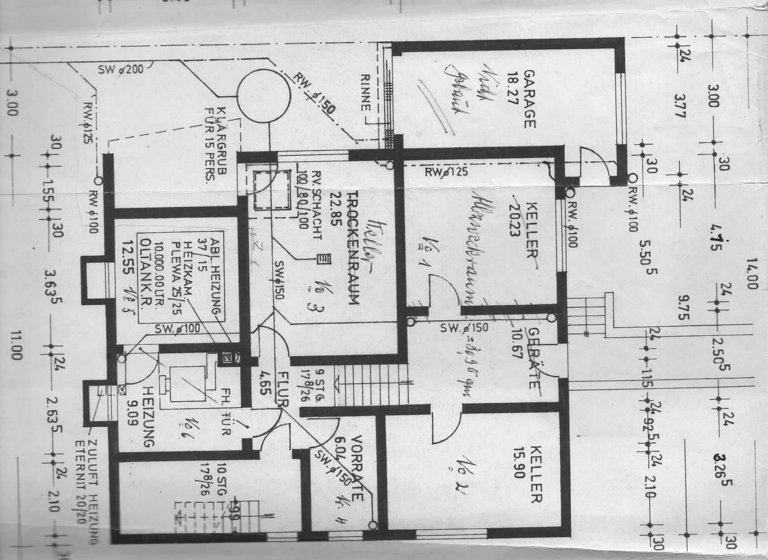 SW ø200
RW. ø150
RINNE
GARAGE
18.27
Nicht
gebaut
24
3.77
3.00
3.00
RW.ø125
KLÄRGRUB
FÜR 15 PERS.
30
1.55
30
RW ø100
RV. SCHACHT
100/80/100
TROCKENRAUM
22.85
Keller
No 3
RW ø125
KELLER
20.23
No 1
RW.ø100
RW.ø100
30
24
30
4.75
5.50⁵
9.75
14.00
ABL. HEIZUNG
37/15
HEIZKAM.
PLEWA 25/25
10.000.00 LTR.
ÖLTANK.R.
12.55
No 5
SW.ø150
3.63⁵
11.00
SW. ø100
SW. ø150
GERÄTE
10.67
24
24
2.50⁵
1.15
FH. TÜR
No 6
HEIZUNG
9.09
FLUR
4.65
9 STG.
178/26
24
2.63⁵
KELLER
15.90
No 2
VORRÄTE
6.04
SW. ø150
No 4
24
92⁵
24
24
3.26⁵
2.10
ZULUFT HEIZUNG
ETERNIT 20/20
10 STG
178/26
99
24
2.10
30
30
30